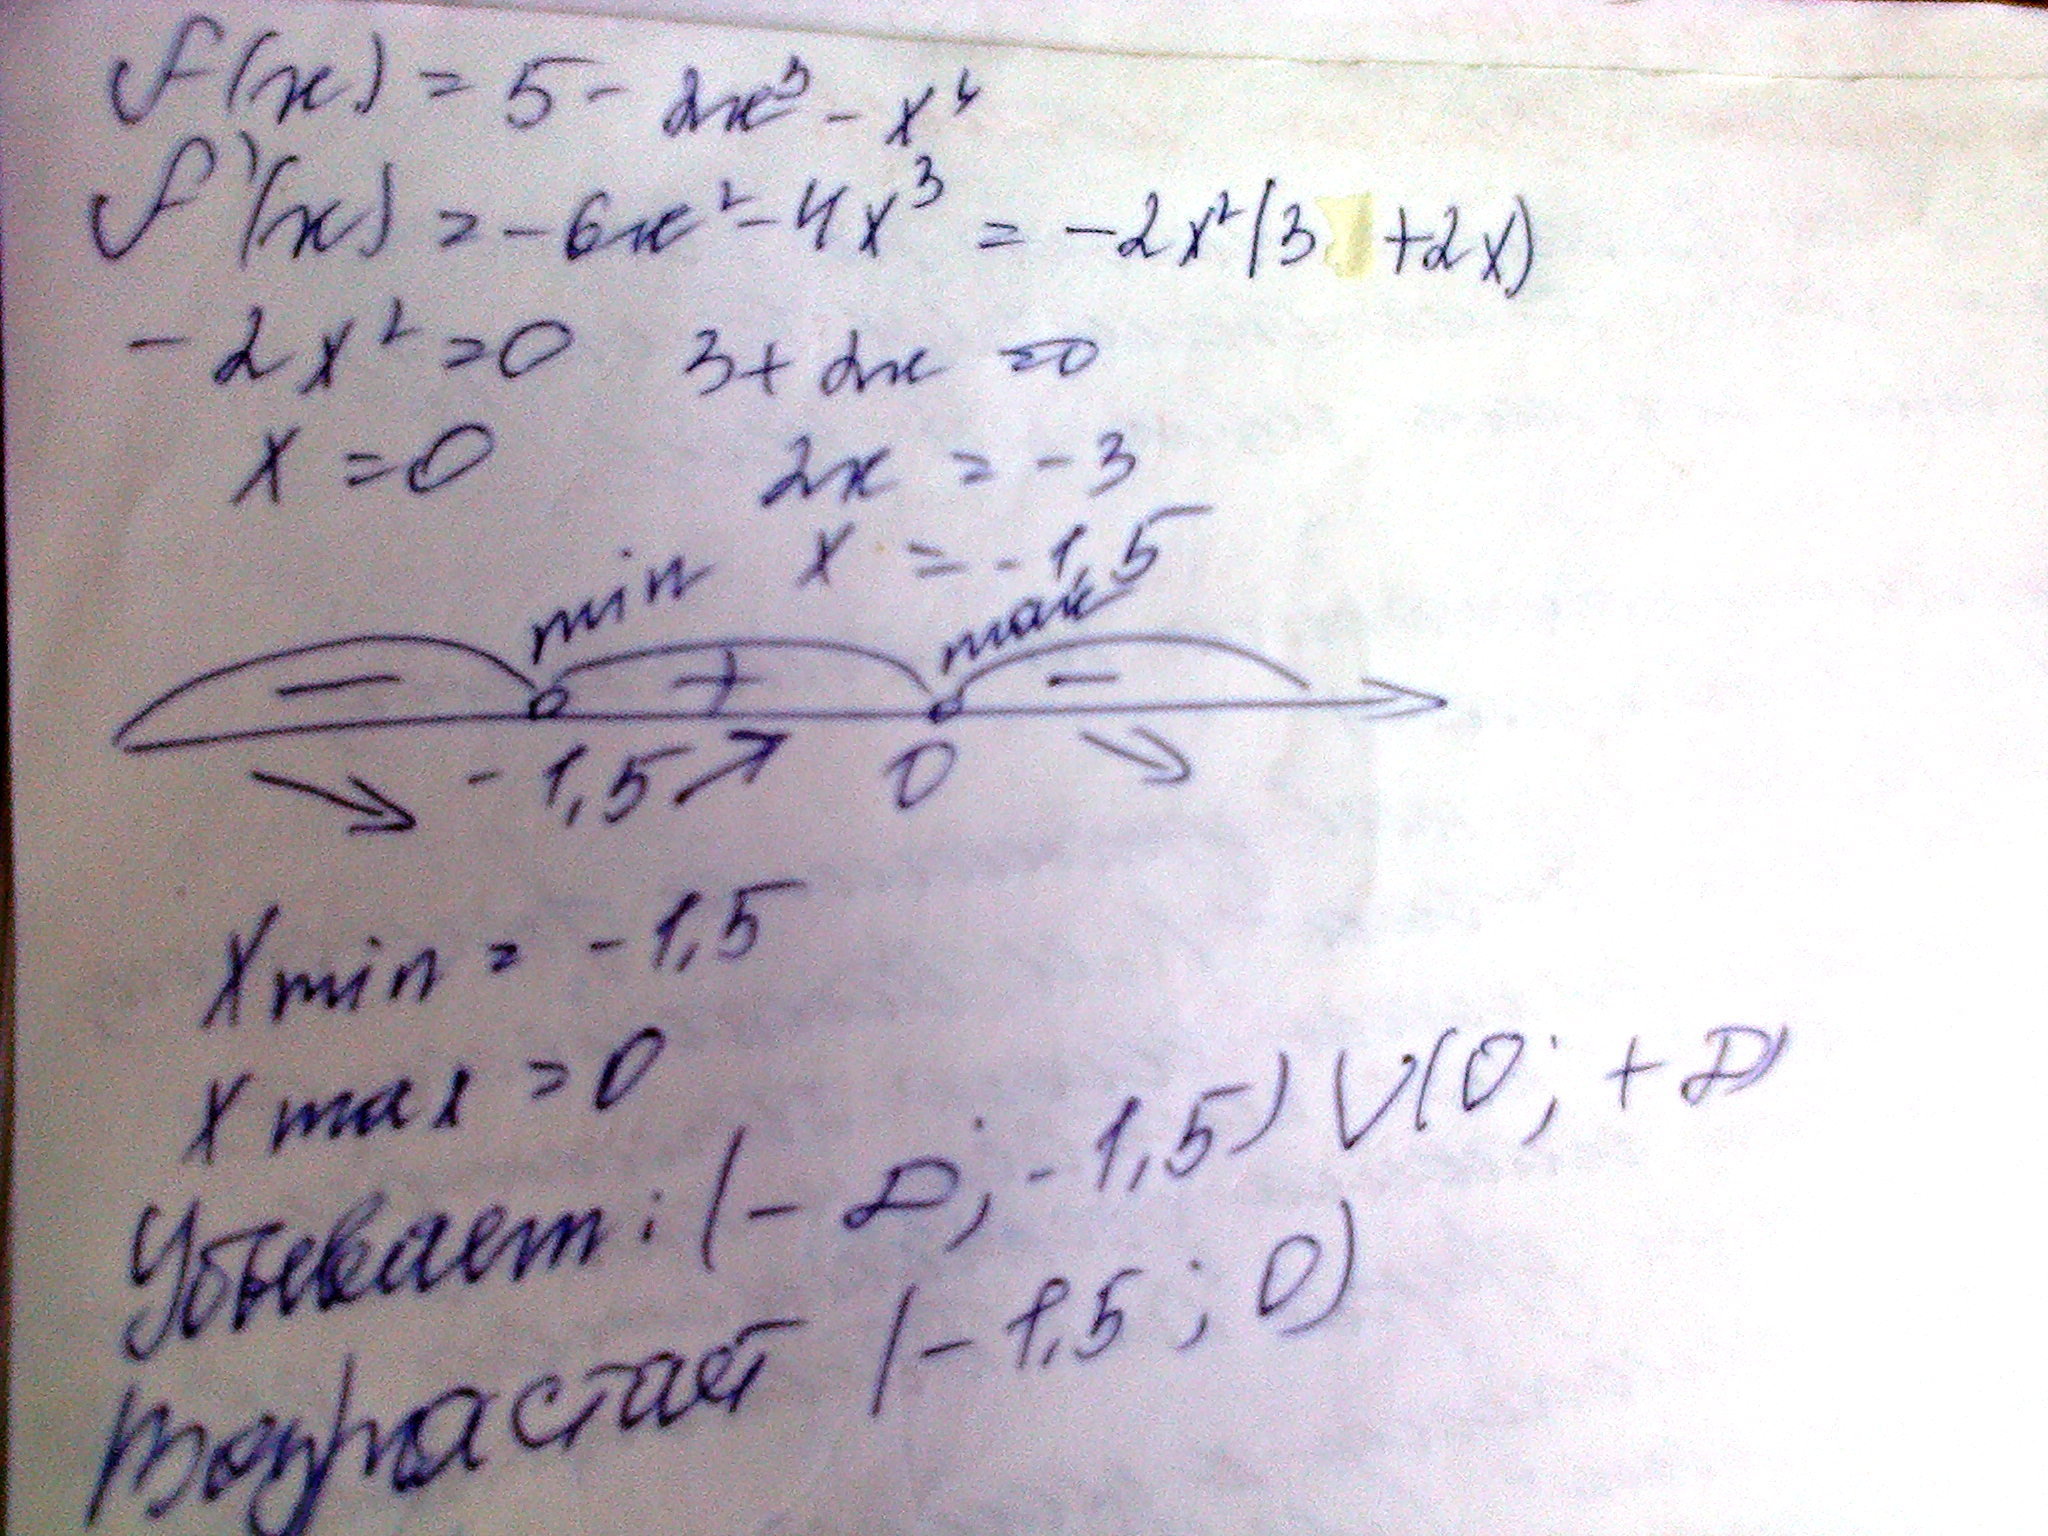 f(x) = 5 - 2x³ - x⁴
f'(x) = -6x² - 4x³ = -2x²(3 +2x)
-2x² = 0 3 + 2x = 0
x = 0 2x = -3
min x = -1,5
max
- + -
-1,5 0
Xmin = -1,5
Xmax = 0
Убывает: (-∞; -1,5) ∪ (0; +∞)
Возрастает (-1,5; 0)